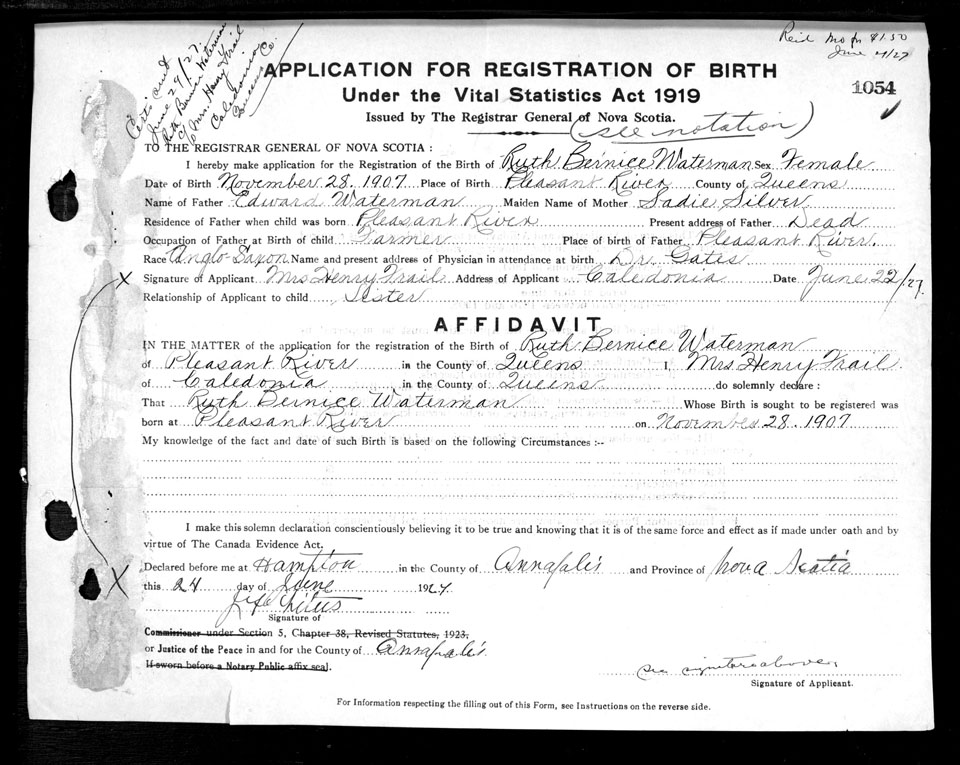 Cert. sent
June 29/27.
Ruth Bernice Waterman
c/o Mrs. Henry Frail
Caledonia
Queens Co.
June 4/27
1054
APPLICATION FOR REGISTRATION OF BIRTH
Under the Vital Statistics Act 1919
Issued by The Registrar General of Nova Scotia.
(see notation)
TO THE REGISTRAR GENERAL OF NOVA SCOTIA :
I hereby make application for the Registration of the Birth of Ruth Bernice Waterman Sex Female
Date of Birth November 28, 1907 Place of Birth Pleasant River County of Queens
Name of Father Edward Waterman Maiden Name of Mother Sadie Silver
Residence of Father when child was born Pleasant River Present address of Father Dead
Occupation of Father at Birth of child Farmer Place of birth of Father Pleasant River.
Race Anglo-Saxon Name and present address of Physician in attendance at birth Dr. Gates
X Signature of Applicant Mrs Henry Frail Address of Applicant Caledonia Date June 22/27.
Relationship of Applicant to child Sester
AFFIDAVIT
IN THE MATTER of the application for the registration of the Birth of Ruth Bernice Waterman
of Pleasant River in the County of Queens I, Mrs Henry Frail
of Caledonia in the County of Queens do solemnly declare :
That Ruth Bernice Waterman Whose Birth is sought to be registered was
born at Pleasant River on November 28, 1907
My knowledge of the fact and date of such Birth is based on the following Circumstances :--
I make this solemn declaration conscientiously believing it to be true and knowing that it is of the same force and effect as if made under oath and by
virtue of The Canada Evidence Act.
Declared before me at Hampton in the County of Annapolis and Province of Nova Scotia
X this 24 day of June 1927.
Signature of
Commissioner under Section 5, Chapter 38, Revised Statutes, 1923,
or Justice of the Peace in and for the County of Annapolis
If sworn before a Notary Public affix seal.
see signature above,
Signature of Applicant.
For Information respecting the filling out of this Form, see Instructions on the reverse side.